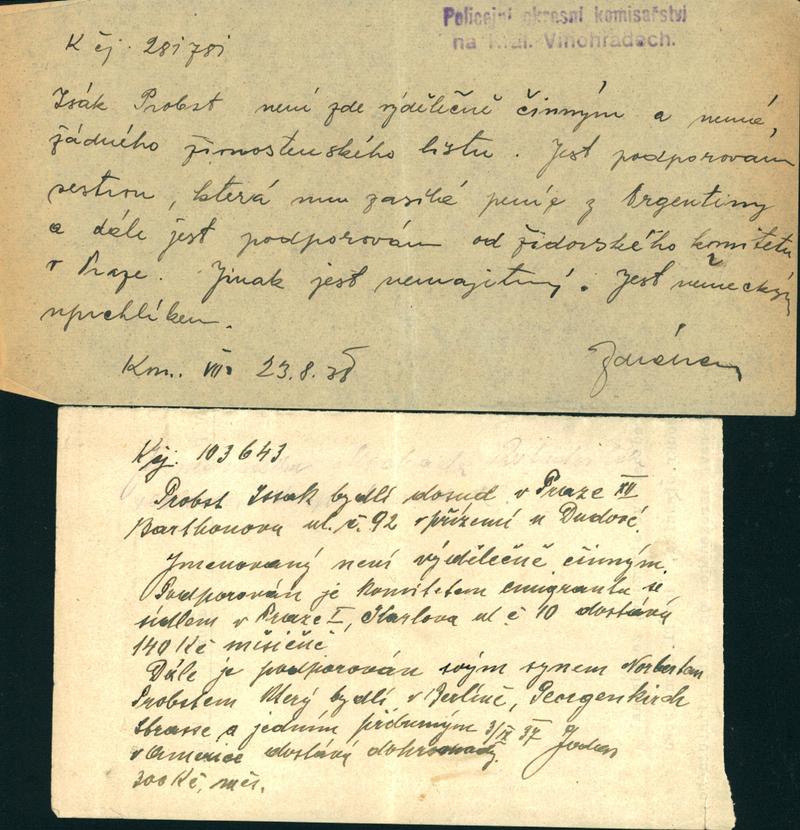 Policejní okresní komisařství
na Král. Vinohradech.
K čj. 281781
Isák Probst není zde výdělečně činným a nemá
žádného živnostenského listu. Jest podporován
sestrou, která mu zasílá peníze z Argentiny
a dále jest podporován od židovského komitétu
v Praze. Jinak jest nemajetný. Jest německým
uprchlíkem.
Kom. VII. 23.8.38
K čj. 103643
Probst Issak bydlí dosud v Praze XII
Barthonova ul. č. 92 v přízemí u
Jmenovaný není výdělečně činným.
Podporován je komitétem emigrantů se
sídlem v Praze I, Karlova ul č 10 dostává
140 Kč měsíčně
Dále je podporován svým synem Norbertem
Probstem který bydlí v Berlíně, Georgenkirch
strasse a jedním příbuzným 3/IX 37
v Americe dostává dohromady
300 Kč, měs.